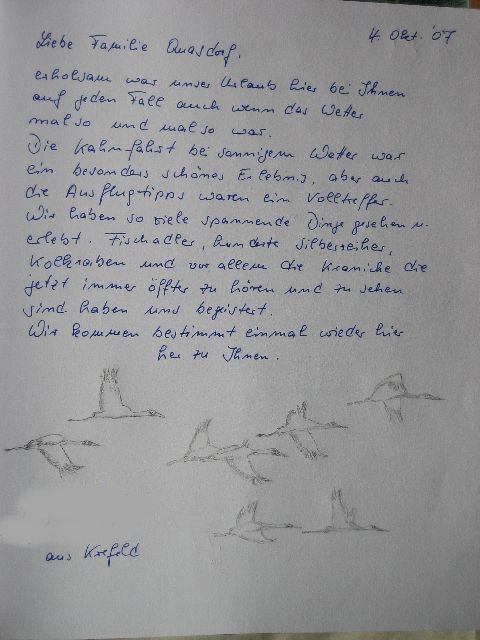 4. Okt. '07
Liebe Familie Quasdorf,
erholsam war unser Urlaub hier bei Ihnen
auf jeden Fall auch wenn das Wetter
mal so und mal so war.
Die Kahnfahrt bei sonnigem Wetter war
ein besonders schönes Erlebnis, aber auch
die Ausflugtipps waren ein Volltreffer.
Wir haben so viele spannende Dinge gesehen u.
erlebt. Fischadler, hunderte Silberreiher,
Kolkraben und vor allem die Kraniche die
jetzt immer öffter zu hören und zu sehen
sind haben uns begeistert.
Wir kommen bestimmt einmal wieder hier
her zu Ihnen.
aus Krefeld